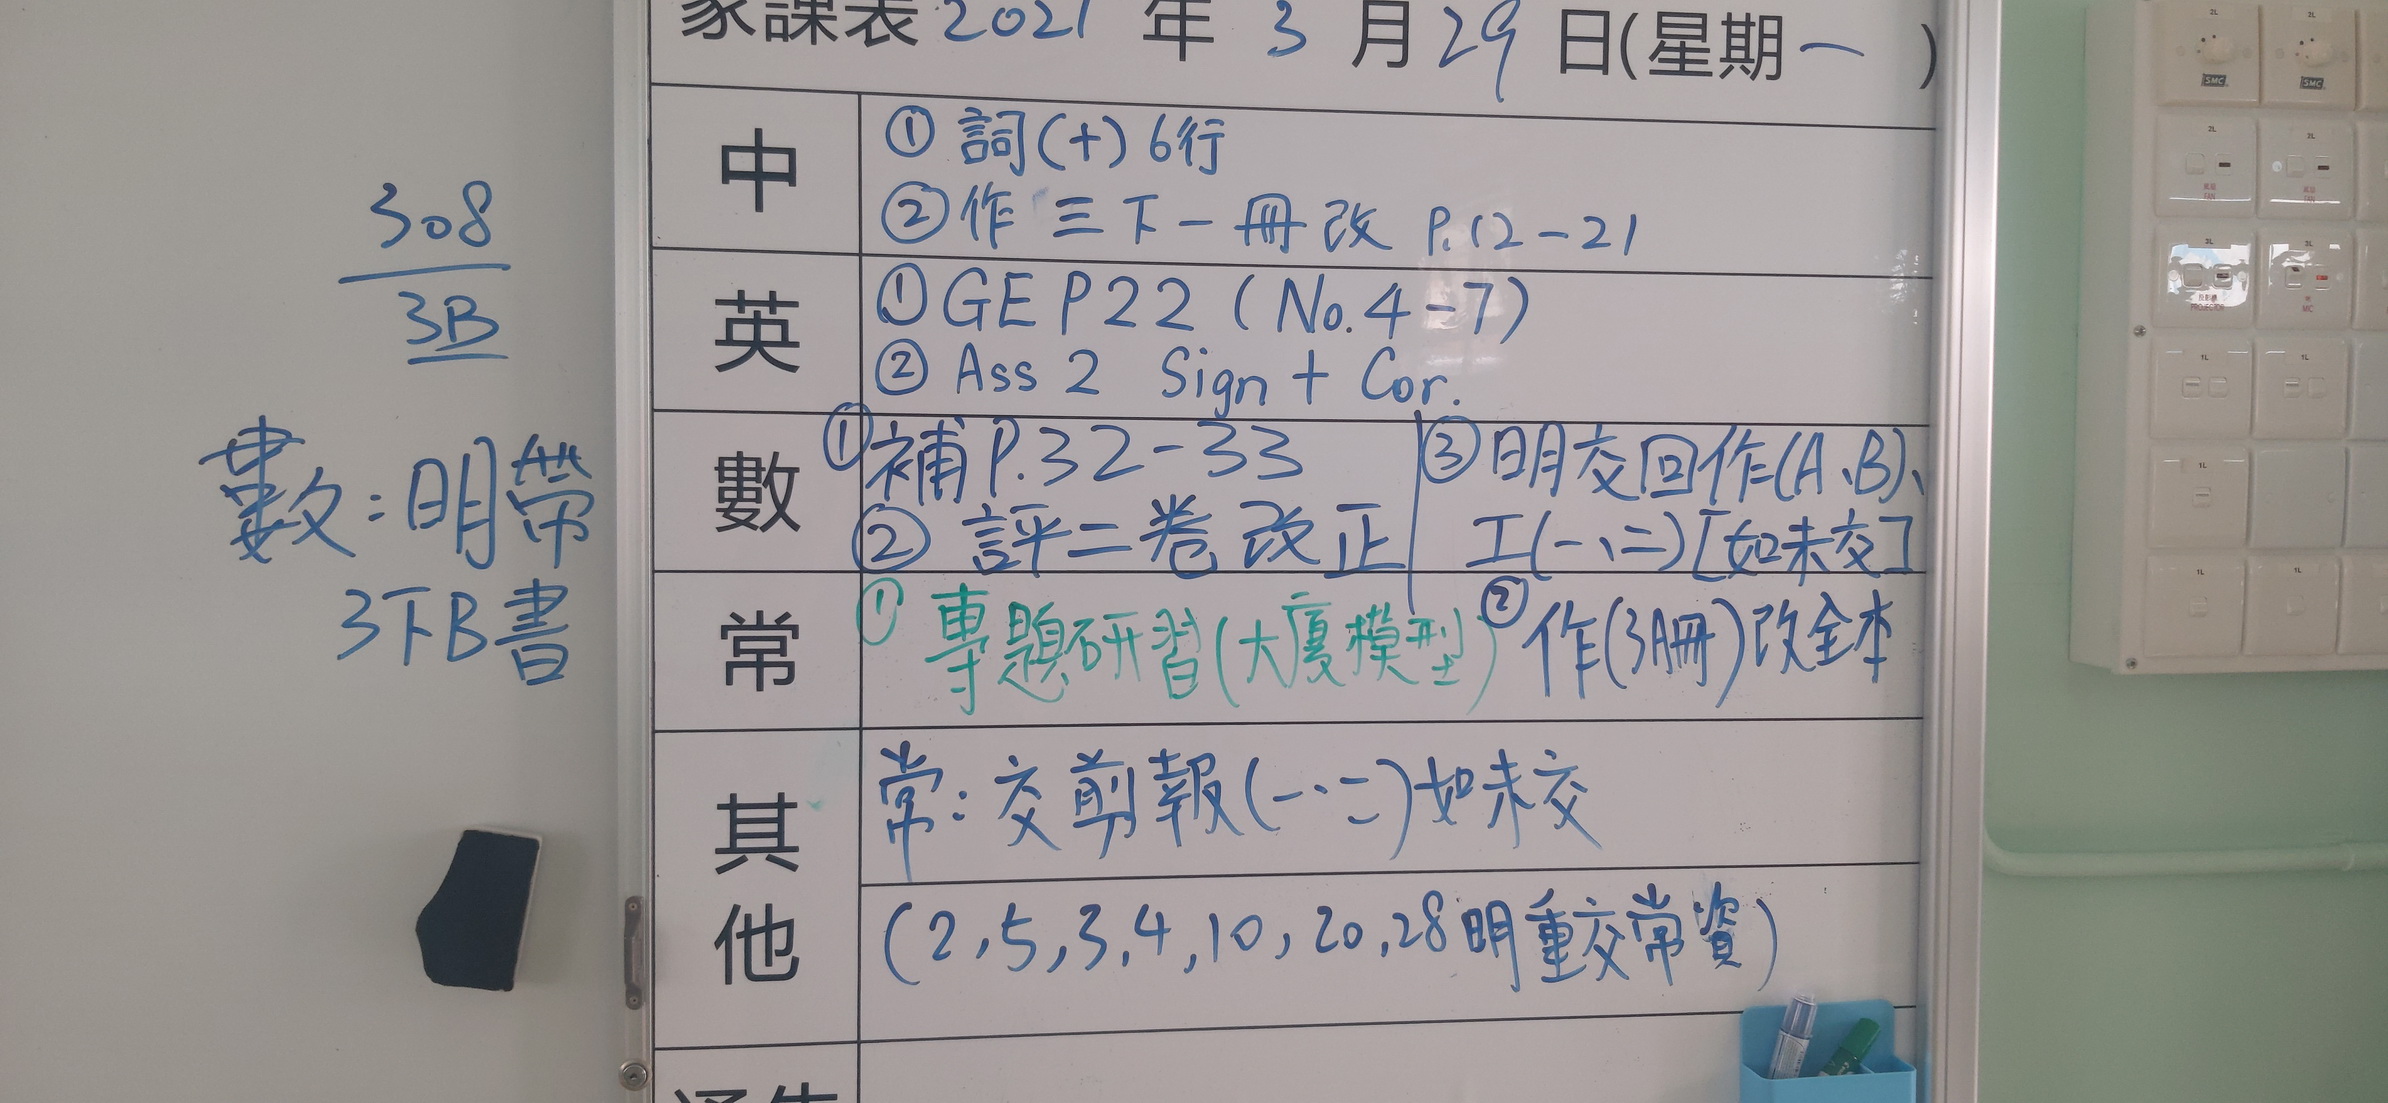 家課表 2021 年 3 月 29 日(星期一 )
中
① 詞(十) 6行
② 作 三下一冊改 P.12-21
英
① GE P22 (No.4-7)
② Ass 2 Sign + Cor.
數
① 補P.32-33
② 評二卷改正
③ 明交回作(A、B)、
工(一、二)[如未交]
常
① 專題研習(大廈模型)
② 作(3A冊)改全本
其他
常：交剪報(一、二)如未交
(2,5,3,4,10,20,28明重交常資)
通告
308
3B
數：明帶
3下B書
2L
2L
SMC
SMC
2L
2L
FAN
FAN
3L
3L
PROJECTOR
MIC
1L
1L
1L
1L
1L